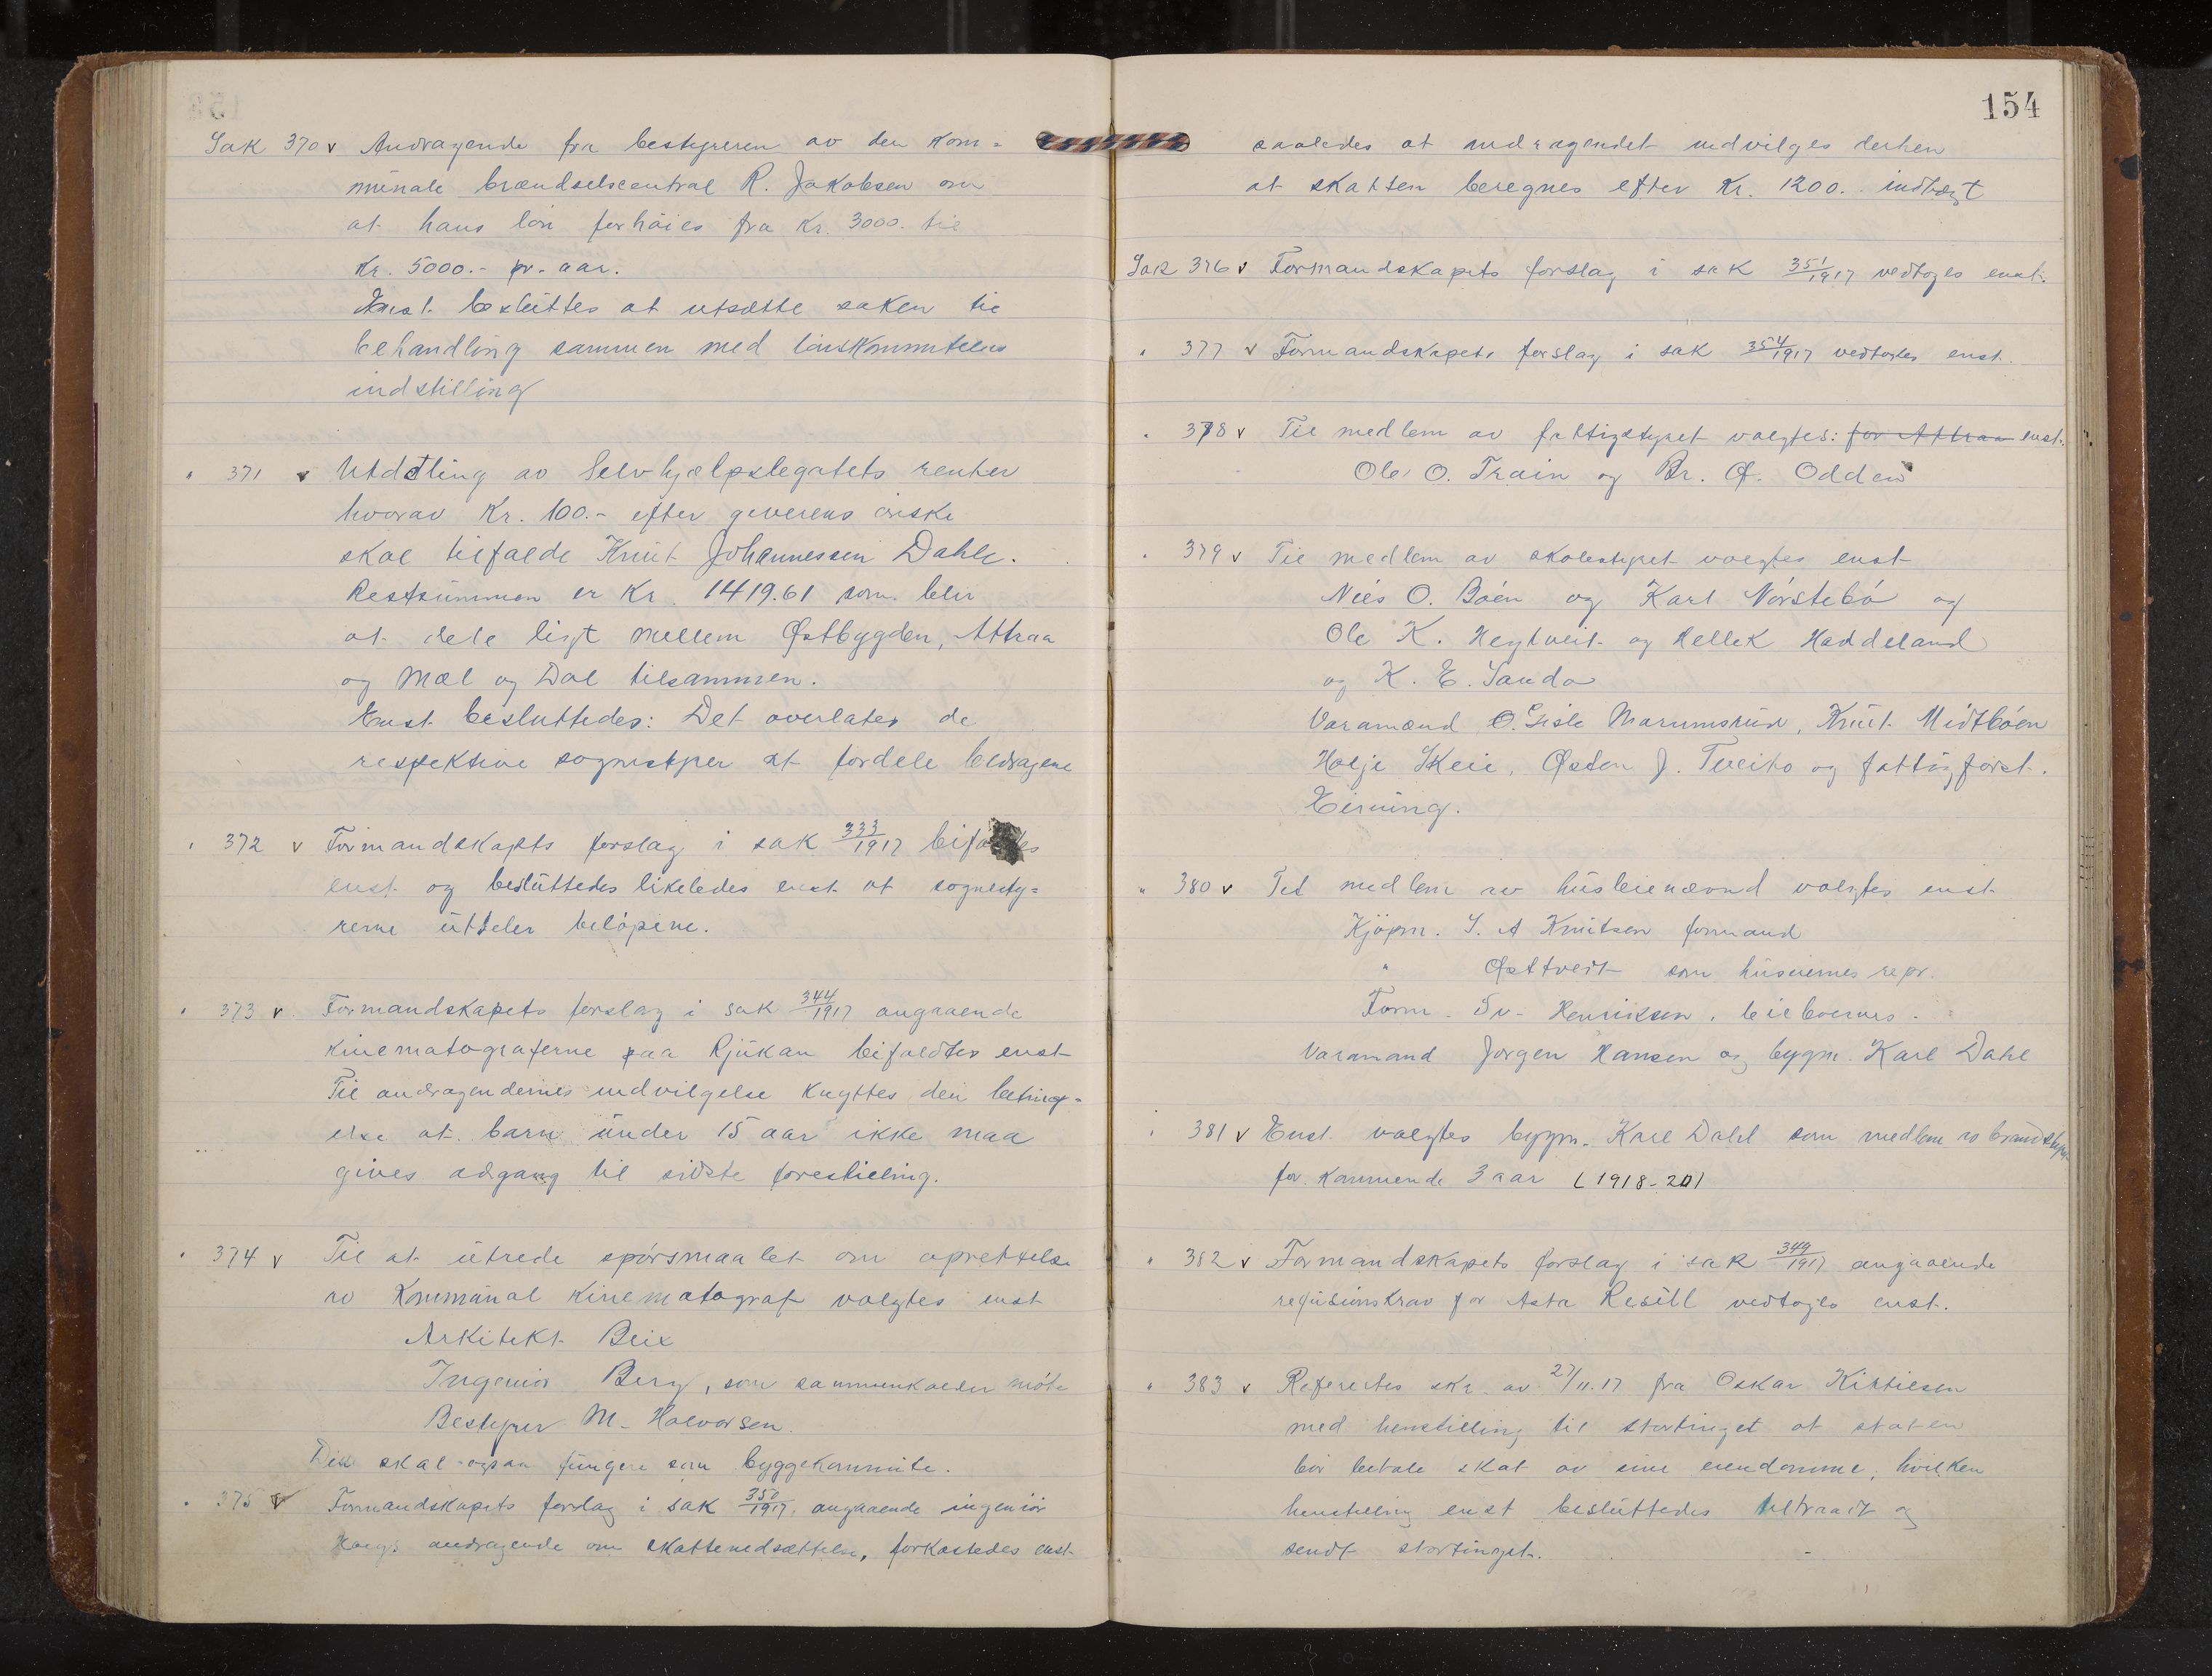 Sak 370 v Andragende fra bestyreren av den kom-
munale brændselscentral R. Jakobsen om
at hans lön forhöies fra Kr. 3000. til
Kr. 5000.- pr. aar.
Enst. besluttes at utsætte saken til
behandling sammen med lönskommiteens
indstilling
" 371 v Utdeling av Selvhjælpslegatets renter
hvorav Kr. 100.- efter giverens önske
skal tilfalde Knut Johannessen Dahle.
Restsummen er Kr. 1419.61 som blir
at dele ligt mellem Østbygden, Attraa
og Mæl og Dal tilsammen.
Enst. besluttedes: Det overlates de
respektive sognestyrer at fordele bedragene
" 372 v Formandskapts forslag i sak 333/1917 bifaldtes
enst. og besluttedes likeledes enst. at sognesty-
rerne utdeler belöpene.
" 373 v Formandskapets forslag i sak 344/1917 angaaende
kinematograferne paa Rjukan bifaldtes enst
Til andragendernes indvilgelse knyttes den beting-
else at barn under 15 aar ikke maa
gives adgang til sidste forestilling.
" 374 v Til at utrede spörsmaalet om oprettelse
av Kommunal kinematograf valgtes enst
Arkitekt Beix
Ingeniör Berg, som sammenkalder möte
Bestyrer M. Halvorsen.
Den skal ogsaa fungere som byggekommite.
" 375 v Formandskapets forslag i sak 350/1917 angaaende ingeniör
Haugs andragende om skattenedsættelse, forkastedes enst.
154
saaledes at andragendet indvilges derhen
at skatten beregnes efter Kr. 1200.- indtægt
Sak 376 v Formandskapets forslag i sak 351/1917 vedtoges enst.
" 377 v Formandskapets forslag i sak 354/1917 vedtokes enst.
" 378 v Til medlem av fattigstyret valgtes: for Attraa enst.
Ole O. Traen og Br. G. Odden
" 379 v Til medlem av skolestyret valgtes enst
Nils O. Böen og Karl Nörstebö og
Ole K. Hegtveit og Hellek Haddeland
og K. E. Sanda
Varamænd O. Gisle Marumsrud, Knut Midtböen
Halje Skeie, Østen J. Tveito og fattigforst.
Eirning.
" 380 v Til medlem av husleienævnd valgtes enst
Kjöpm. S. A Knutsen formand
" Østtveit som huseiernes repr.
Form. Sv. Henriksen, leieboernes.
Varamand Jorgen Hansen og bygm. Karl Dahl
" 381 v Enst. valgtes bygm. Karl Dahl som medlem av brandstyr-
for kommende 3 aar (1918-20)
" 382 v Formandskapets forslag i sak 349/1917 angaaende
refusionskrav for Asta Resell vedtoges enst.
" 383 v Refertes skr. av 27/11.17 fra Oskar Kittilsen
med henstilling til stortinget at staten
bör betale skat av sine eiendomme, hvilken
henstilling enst besluttedes tiltraadt og
sendt stortinget.